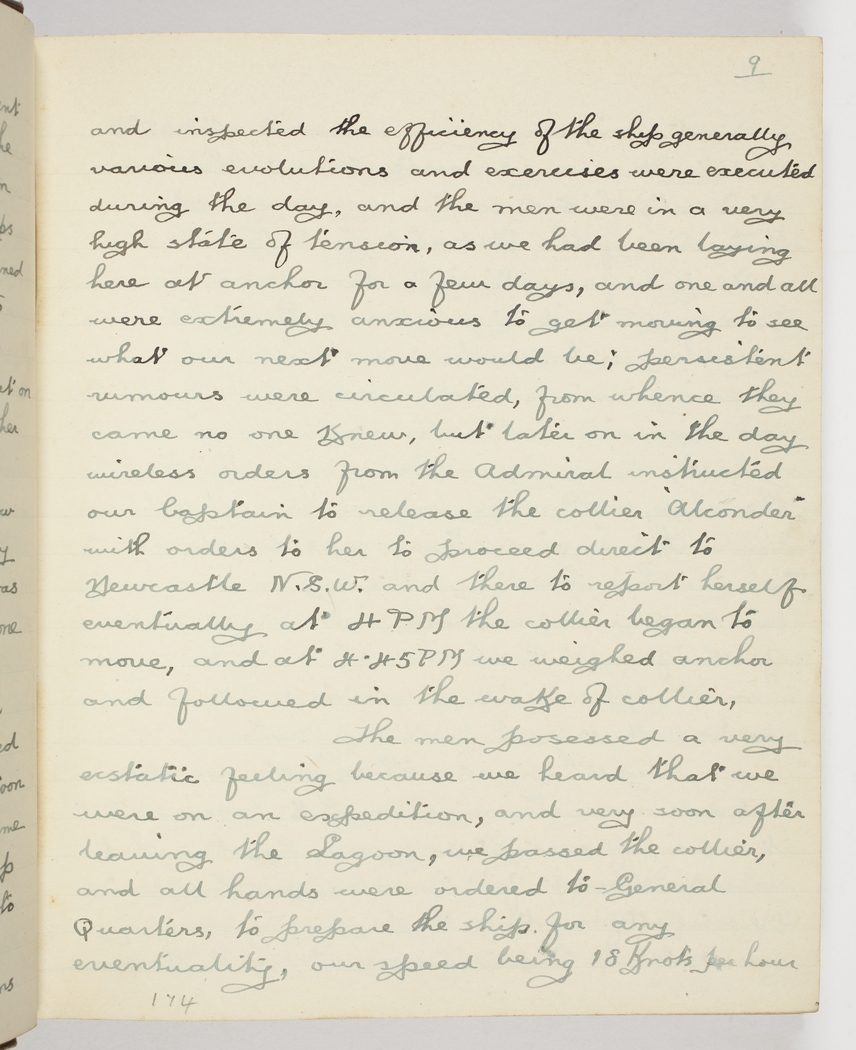 9
and inspected the efficiency of the ship generally
various evolutions and exercises were executed
during the day, and the men were in a very
high state of tension, as we had been laying
here at anchor for a few days, and one and all
were extremely anxious to get moving to see
what our next move would be; persistent
rumours were circulated, from whence they
came no one knew, but later on in the day
wireless orders from the Admiral instructed
our Captain to release the collier "Alconder"
with orders to her to proceed direct to
Newcastle N.S.W. and there to report herself
eventually at 4 PM the collier began to
move, and at 4.45 PM we weighed anchor
and followed in the wake of collier,
The men posessed a very
ecstatic feeling because we heard that we
were on an expedition, and very soon after
leaving the Lagoon, we passed the collier,
and all hands were ordered to General
Quarters, to prepare the ship. for any
eventuality, our speed being 18 Knots per hour
174